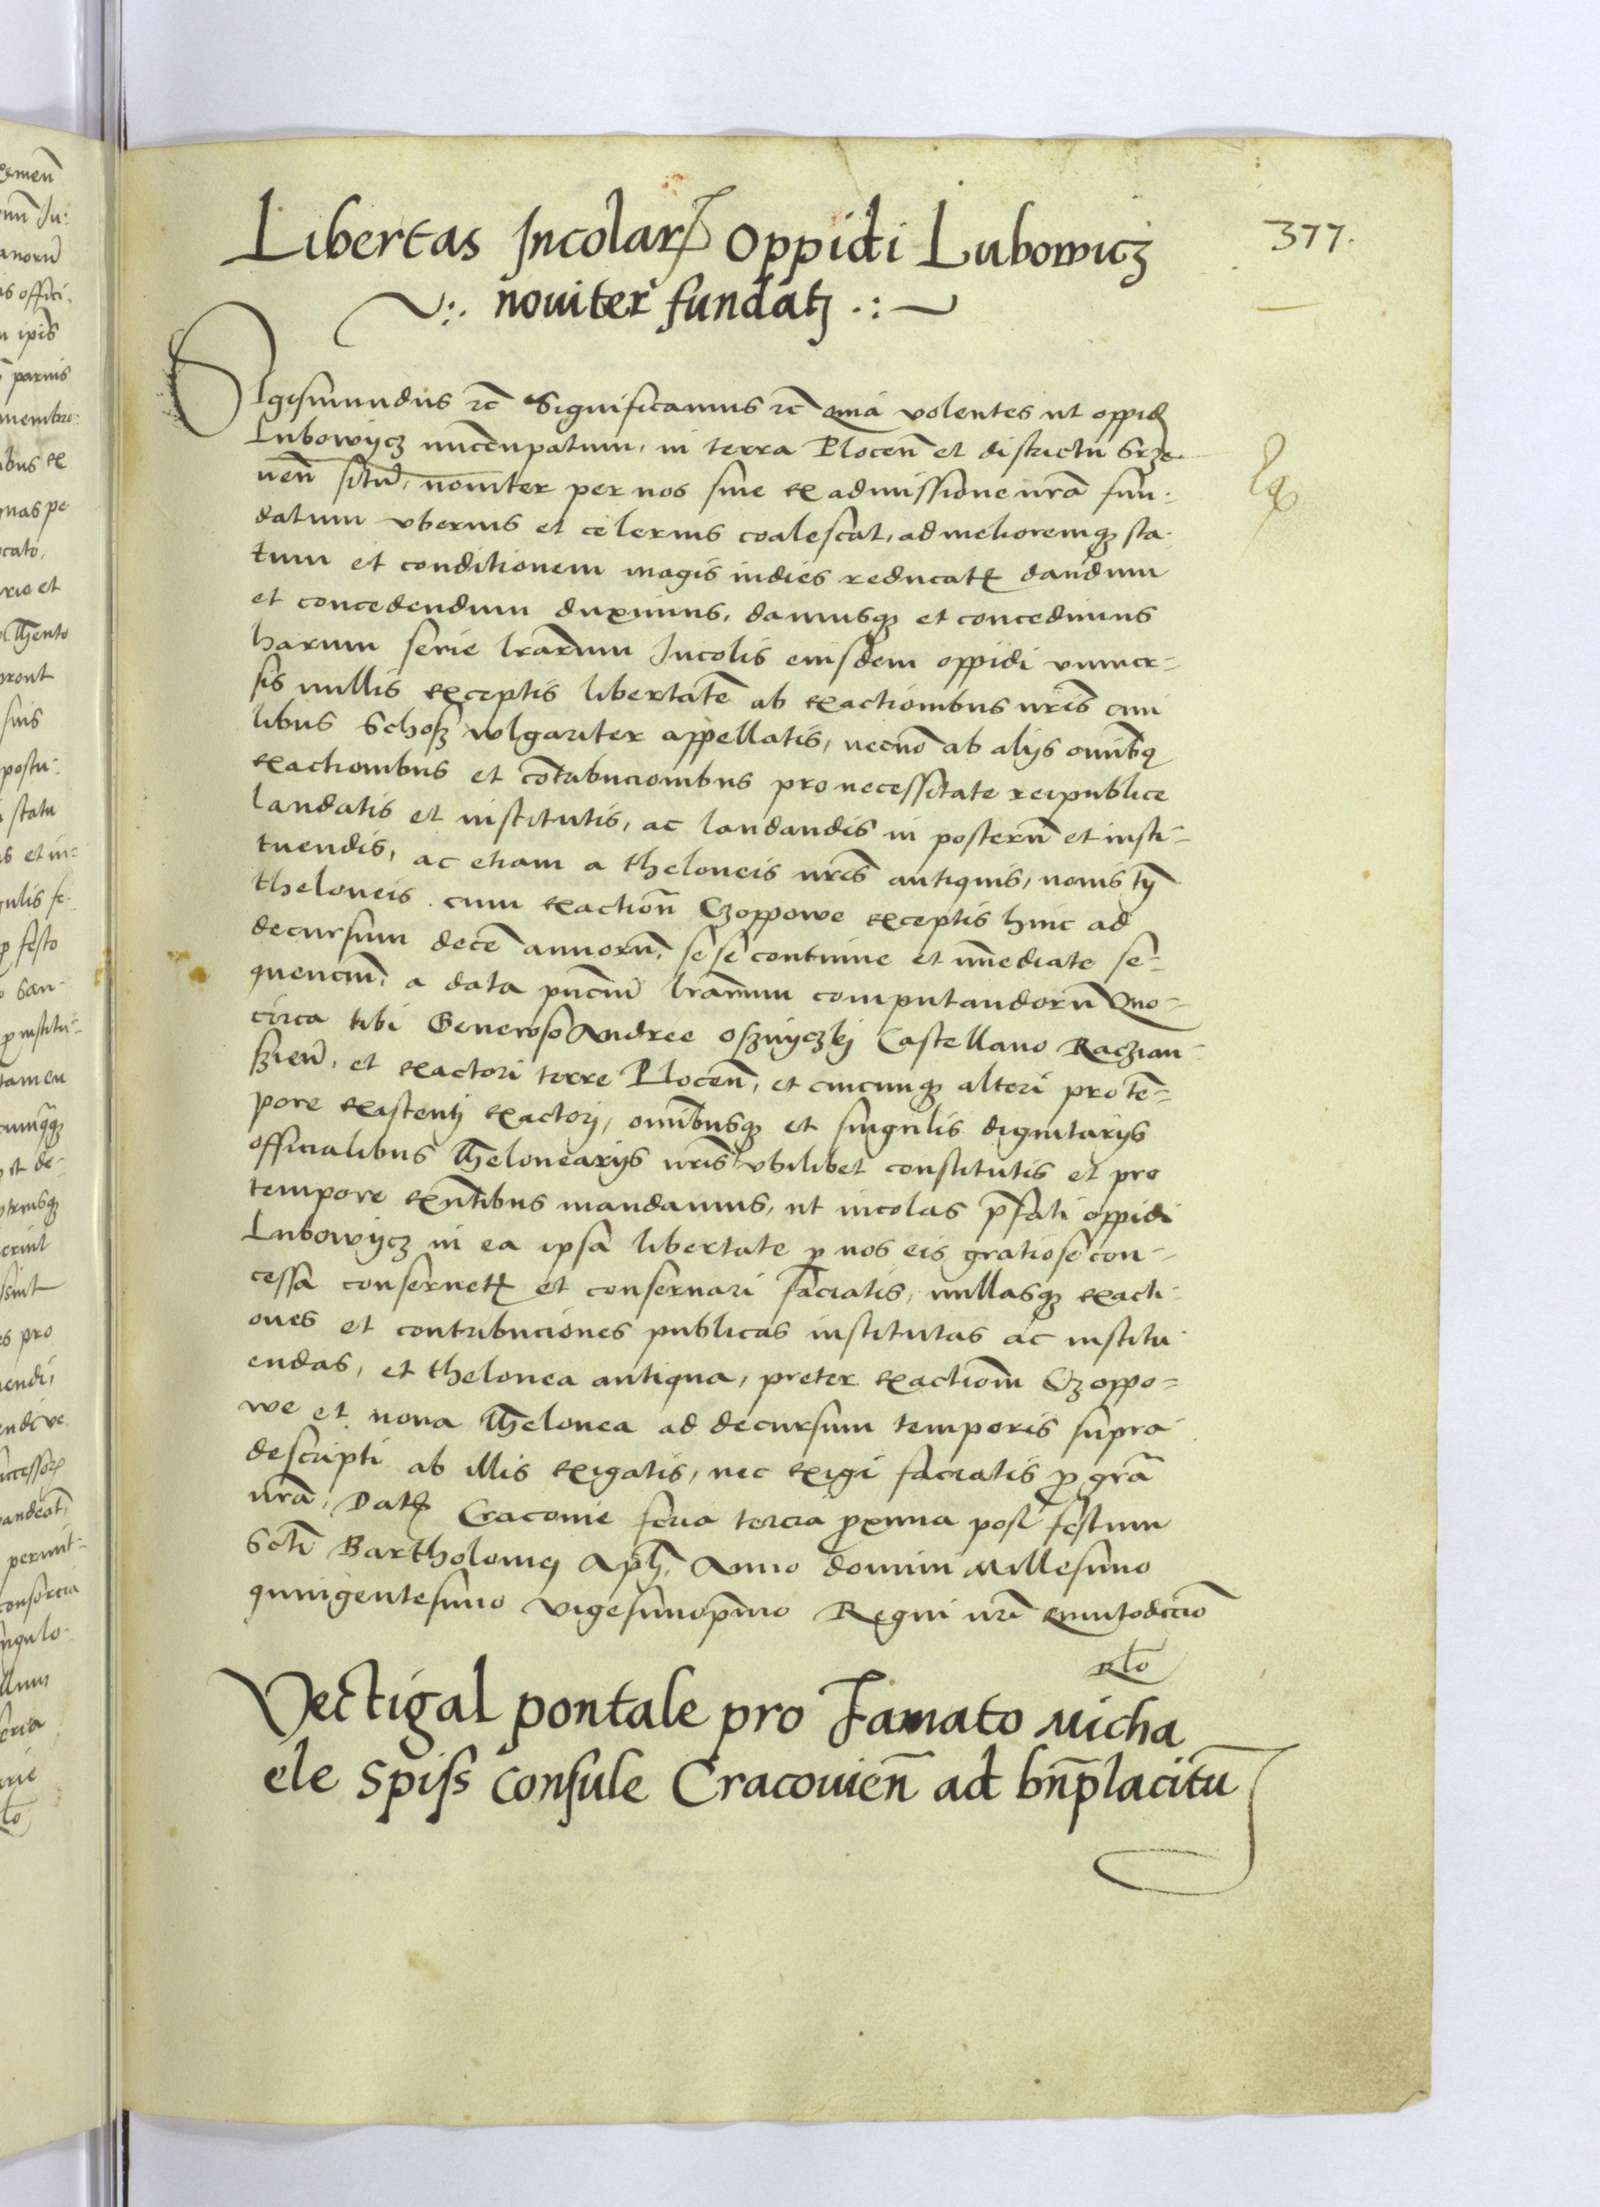 377.
Libertas Incolarꝝ Oppidi Lubowicz
nouiter fundatj
Sigismundus ꝛc̄ Significamus ꝛc̄ Quia volentes ut oppid
Lubowycz nuncupatum, in terra Plocen̄ et districtu Srze-
nen̄ sitū, nouiter per nos siue ex admissione nr̄a fun-
datum vberius et celerius coalescat, ad melioremqꝫ sta-
tum et conditionem magis indies reducatꝝ dandum
et concedendum duximus, damusqꝫ et concedimus
harum serie lrārum Incolis eiusdem oppidi vniuer-
sis nullis exceptis libertatē ab exactionibus nr̄is ciui
libus Schosz vulgariter appellatis, necnō ab alijs omībꝰ
exactionibus et cōtribucionibus pro necessitate reipublice
laudatis et institutis, ac laudandis in posterū et insti-
tuendis, ac etiam a theloneis nr̄is antiquis, nouis tn̄
theloneis cum exactiōn Czoppowe exceptis hinc ad
decursum decē annorū, sese continue et īmediate se-
quenciū, a data pn̄ciū lrārum computandorū Quo-
circa tibi Generoso Andree oszniyczkj Castellano Raczian-
szien̄, et exactori terre Plocen̄, et cuicunqꝫ alteri pro tē-
pore existentj exactorj, omībusqꝫ et singulis dignitarijs
officialibus Thelonearijs nr̄is vbilibet constitutis et pro
tempore exn̄tibus mandamus, ut incolas p̄fati oppidi
Lubowycz in ea ipsa libertate ꝑ nos eis gratiose con-
cessa conseruetꝭ et conseruari faciatis, nullasqꝫ exacti-
ones et contribuciones publicas institutas ac institu-
endas, et thelonea antiqua, preter exactiōm Czoppo-
we et noua Thelonea ad decursum temporis supra
descripti ab illis exigatis, nec exigi faciatis ꝓ grā
nr̄a, Datꝭ Cracouie feria tercia ꝓxima post festum
Sctī Bartholomej Apl̄j, Anno domini Millesimo
quingentesimo vigesimop̄mo Regni nr̄i Quintodecīo
Rl̄o
Vectigal pontale pro Famato Micha
ele Spiss Consule Cracouien̄ ad bn̄placitū